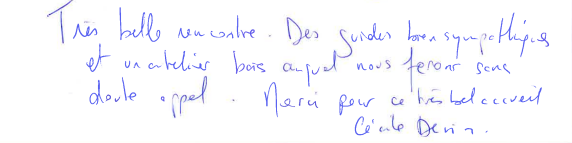 Très belle rencontre. Des guides bien sympathiques
et un atelier bois auquel nous ferons sans
doute appel. Merci pour ce très bel accueil
Cécile